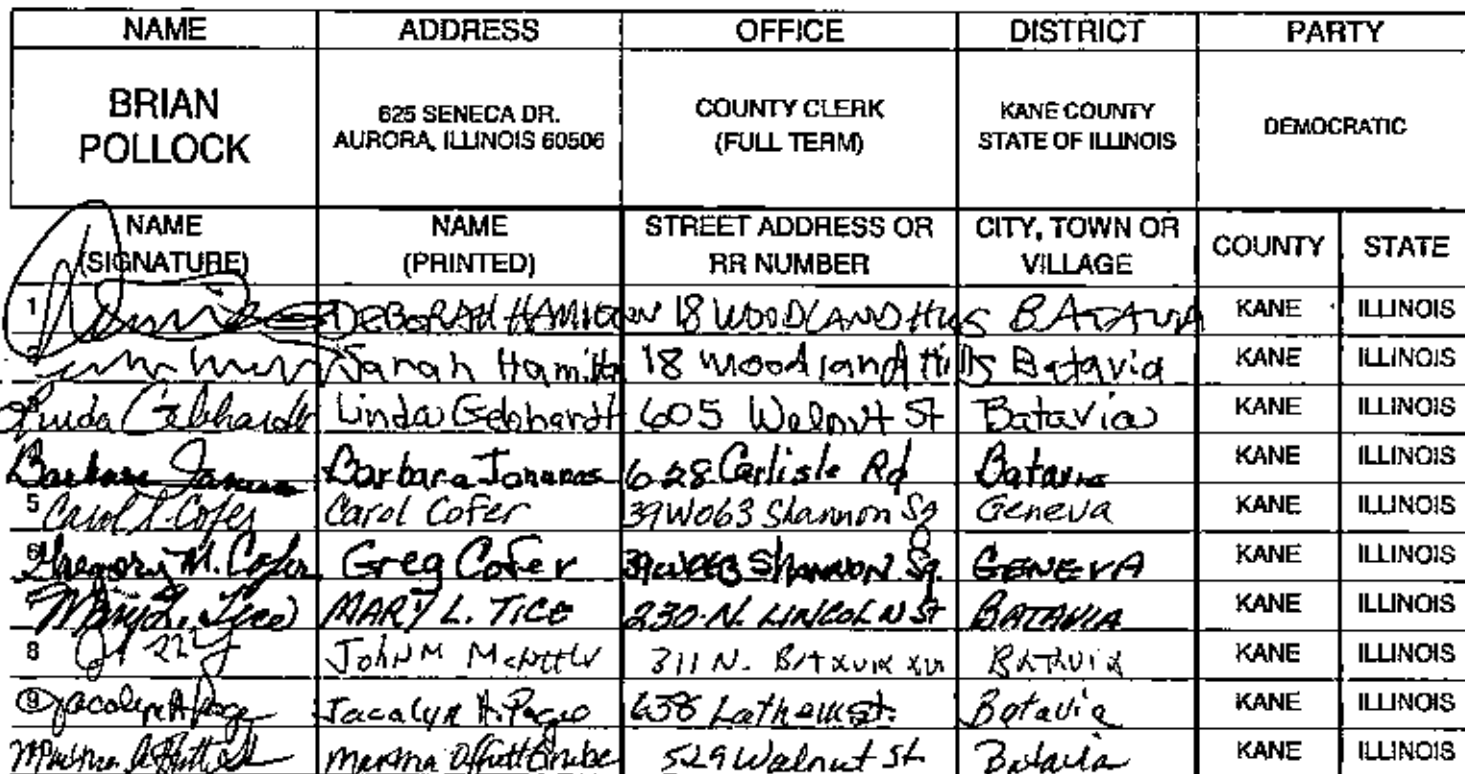 NAME ADDRESS OFFICE DISTRICT PARTY
BRIAN POLLOCK 625 SENECA DR. AURORA, ILLINOIS 60506 COUNTY CLERK (FULL TERM) KANE COUNTY STATE OF ILLINOIS DEMOCRATIC
NAME (SIGNATURE) NAME (PRINTED) STREET ADDRESS OR RR NUMBER CITY, TOWN OR VILLAGE COUNTY STATE
1 DEBORAH HAMILTON 18 WOODLAND HILLS BATAVIA KANE ILLINOIS
Sarah Hamilt 18 Woodland Hills Batavia KANE ILLINOIS
Linda Gebhardt Linda Gebhardt 605 Walnut St Batavia KANE ILLINOIS
Barbara Barbara 628 Carlisle Rd Batavia KANE ILLINOIS
5 Carol L. Cofer Carol Cofer 39W063 Shannon Sq Geneva KANE ILLINOIS
6 Gregory M. Cofer Greg Cofer 39W063 SHANNON Sq. GENEVA KANE ILLINOIS
Mary L. Tice MARY L. TICE 230 N. LINCOLN St BATAVIA KANE ILLINOIS
8 John M 311 N. Batavia KANE ILLINOIS
9 Jacalyn A Page Jacalyn A. Page 638 Lathem St. Batavia KANE ILLINOIS
529 Walnut St Batavia KANE ILLINOIS